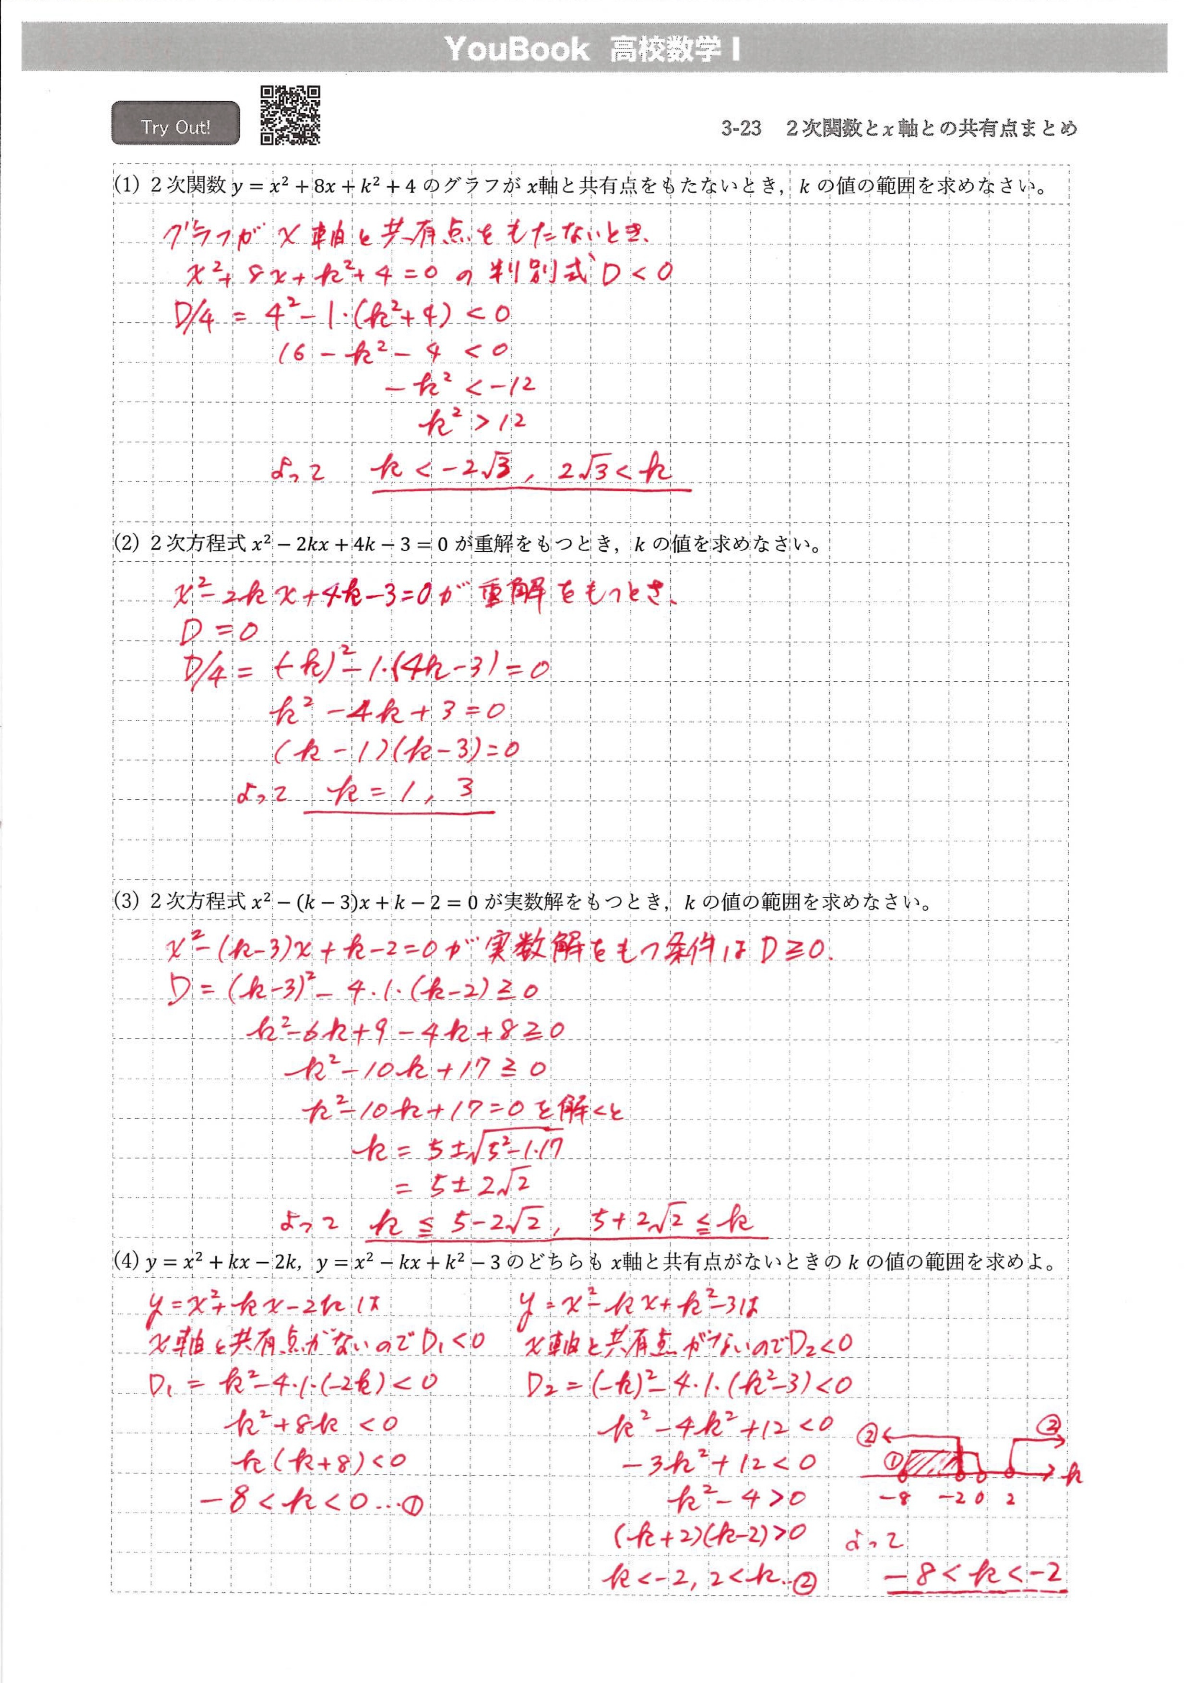 YouBook 高校数学 I
Try Out!
3-23 2次関数とx軸との共有点まとめ
(1) 2次関数 y = x² + 8x + k² + 4 のグラフが x軸と共有点をもたないとき，k の値の範囲を求めなさい。
グラフが x 軸と共有点をもたないとき、
x²+8x+k²+4=0 の 判別式 D<0
D/4 = 4²-1・(k²+4) < 0
16 - k² - 4 < 0
-k² < -12
k² > 12
よって k < -2√3 , 2√3 < k
(2) 2次方程式 x² − 2kx + 4k − 3 = 0 が重解をもつとき，k の値を求めなさい。
x²-2kx+4k-3=0が 重解をもつとき、
D = 0
D/4 = (-k)²-1・(4k-3) = 0
k² - 4k + 3 = 0
(k-1)(k-3)=0
よって k = 1 , 3
(3) 2次方程式 x² − (k − 3)x + k − 2 = 0 が実数解をもつとき，k の値の範囲を求めなさい。
x²-(k-3)x+k-2=0が 実数解をもつ条件は D≧0.
D = (k-3)² - 4・1・(k-2) ≧ 0
k²-6k+9-4k+8≧0
k²-10k+17≧0
k²-10k+17=0を解くと
k = 5±√5²-1・17
= 5±2√2
よって k ≦ 5-2√2 , 5+2√2 ≦ k
(4) y = x² + kx − 2k，y = x² − kx + k² − 3 のどちらも x軸と共有点がないときの k の値の範囲を求めよ。
y=x²+kx-2k は
x軸と共有点がないのでD₁<0
D₁ = k²-4・1・(-2k) < 0
k²+8k < 0
k(k+8)<0
-8<k<0…①
y=x²-kx+k²-3は
x軸と共有点がないのでD₂<0
D₂=(-k)²-4・1・(k²-3)<0
k²-4k²+12<0
-3k²+12<0
k²-4>0
(k+2)(k-2)>0
k<-2, 2<k…②
② ②
① k
-8 -2 0 2
よって
-8<k<-2